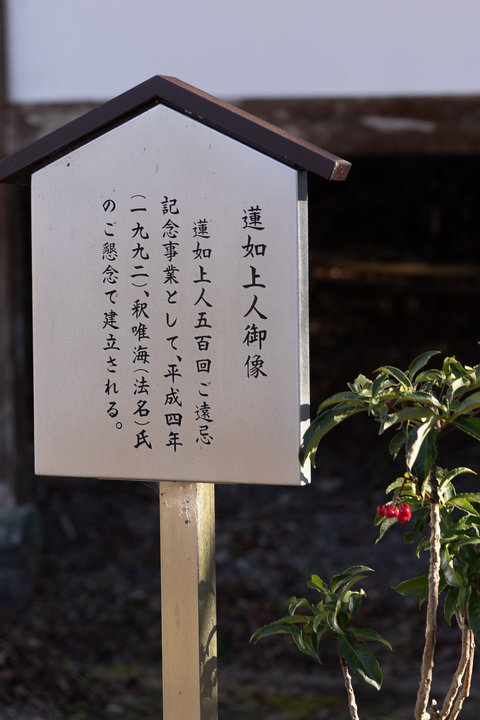 蓮如上人御像
蓮如上人五百回ご遠忌
記念事業として、平成四年
(一九九二)、釈唯海(法名)氏
のご懇念で建立される。